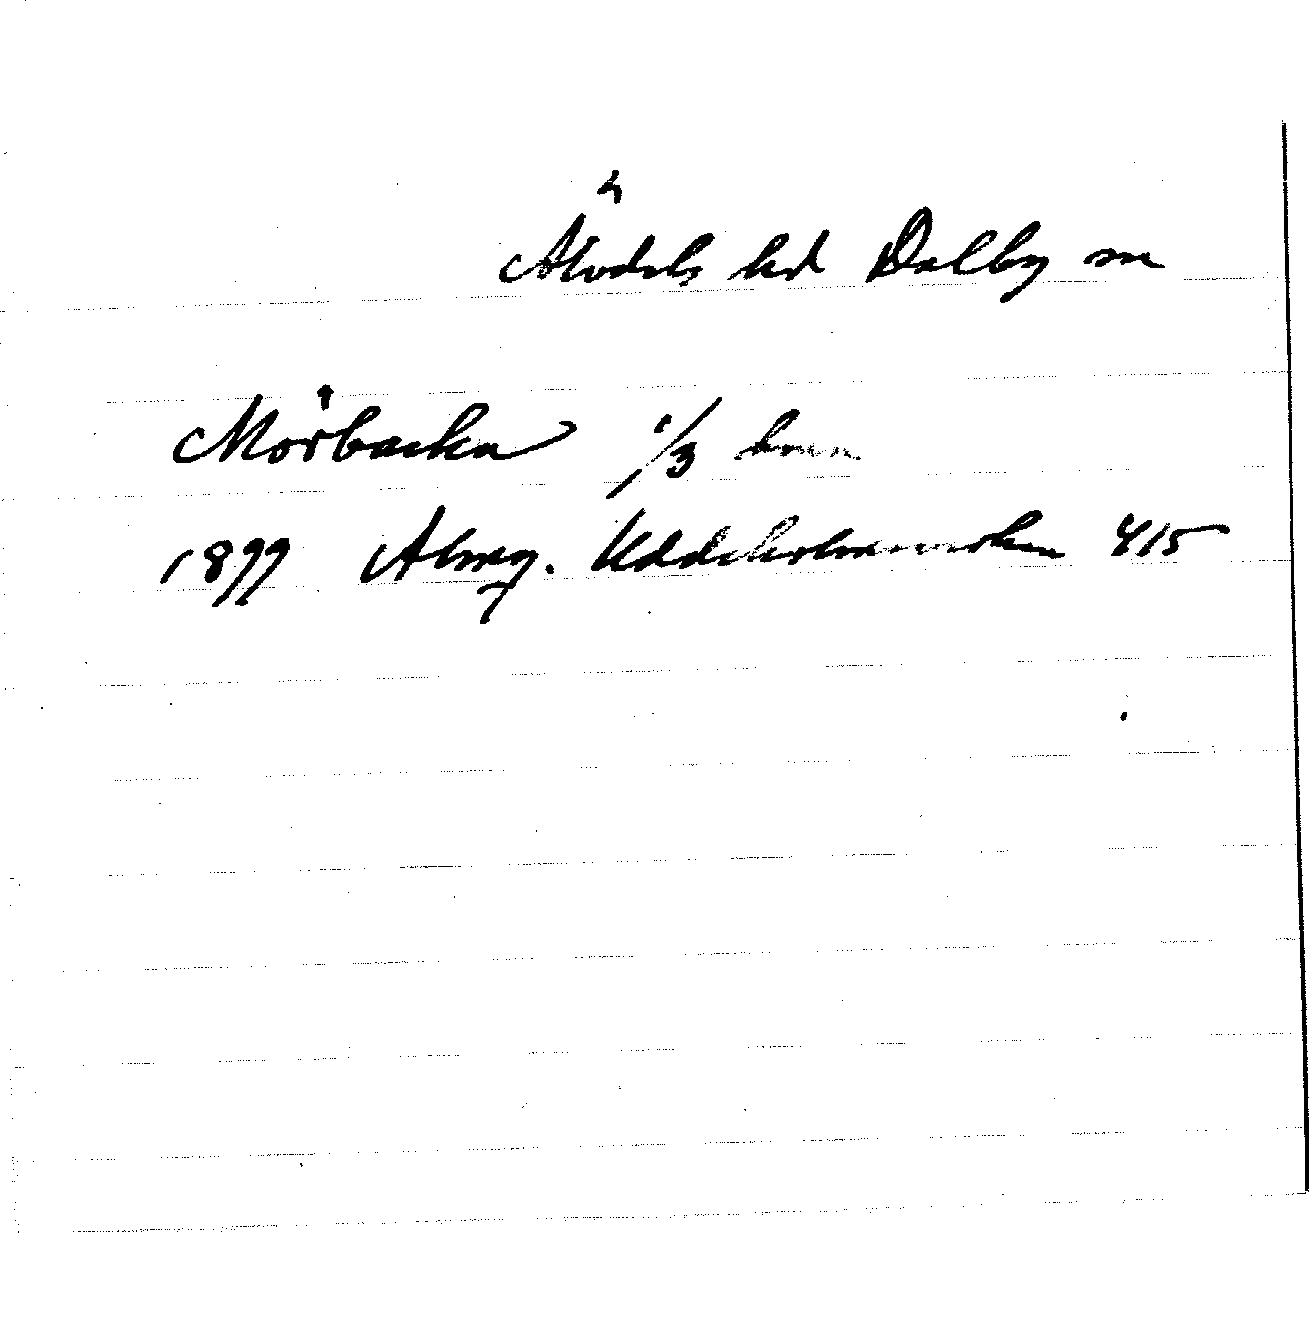 Älvdals hd Dalby sn
Mörbacka 1/3 hmn
1877 Almq. Uddeholmsverken 415